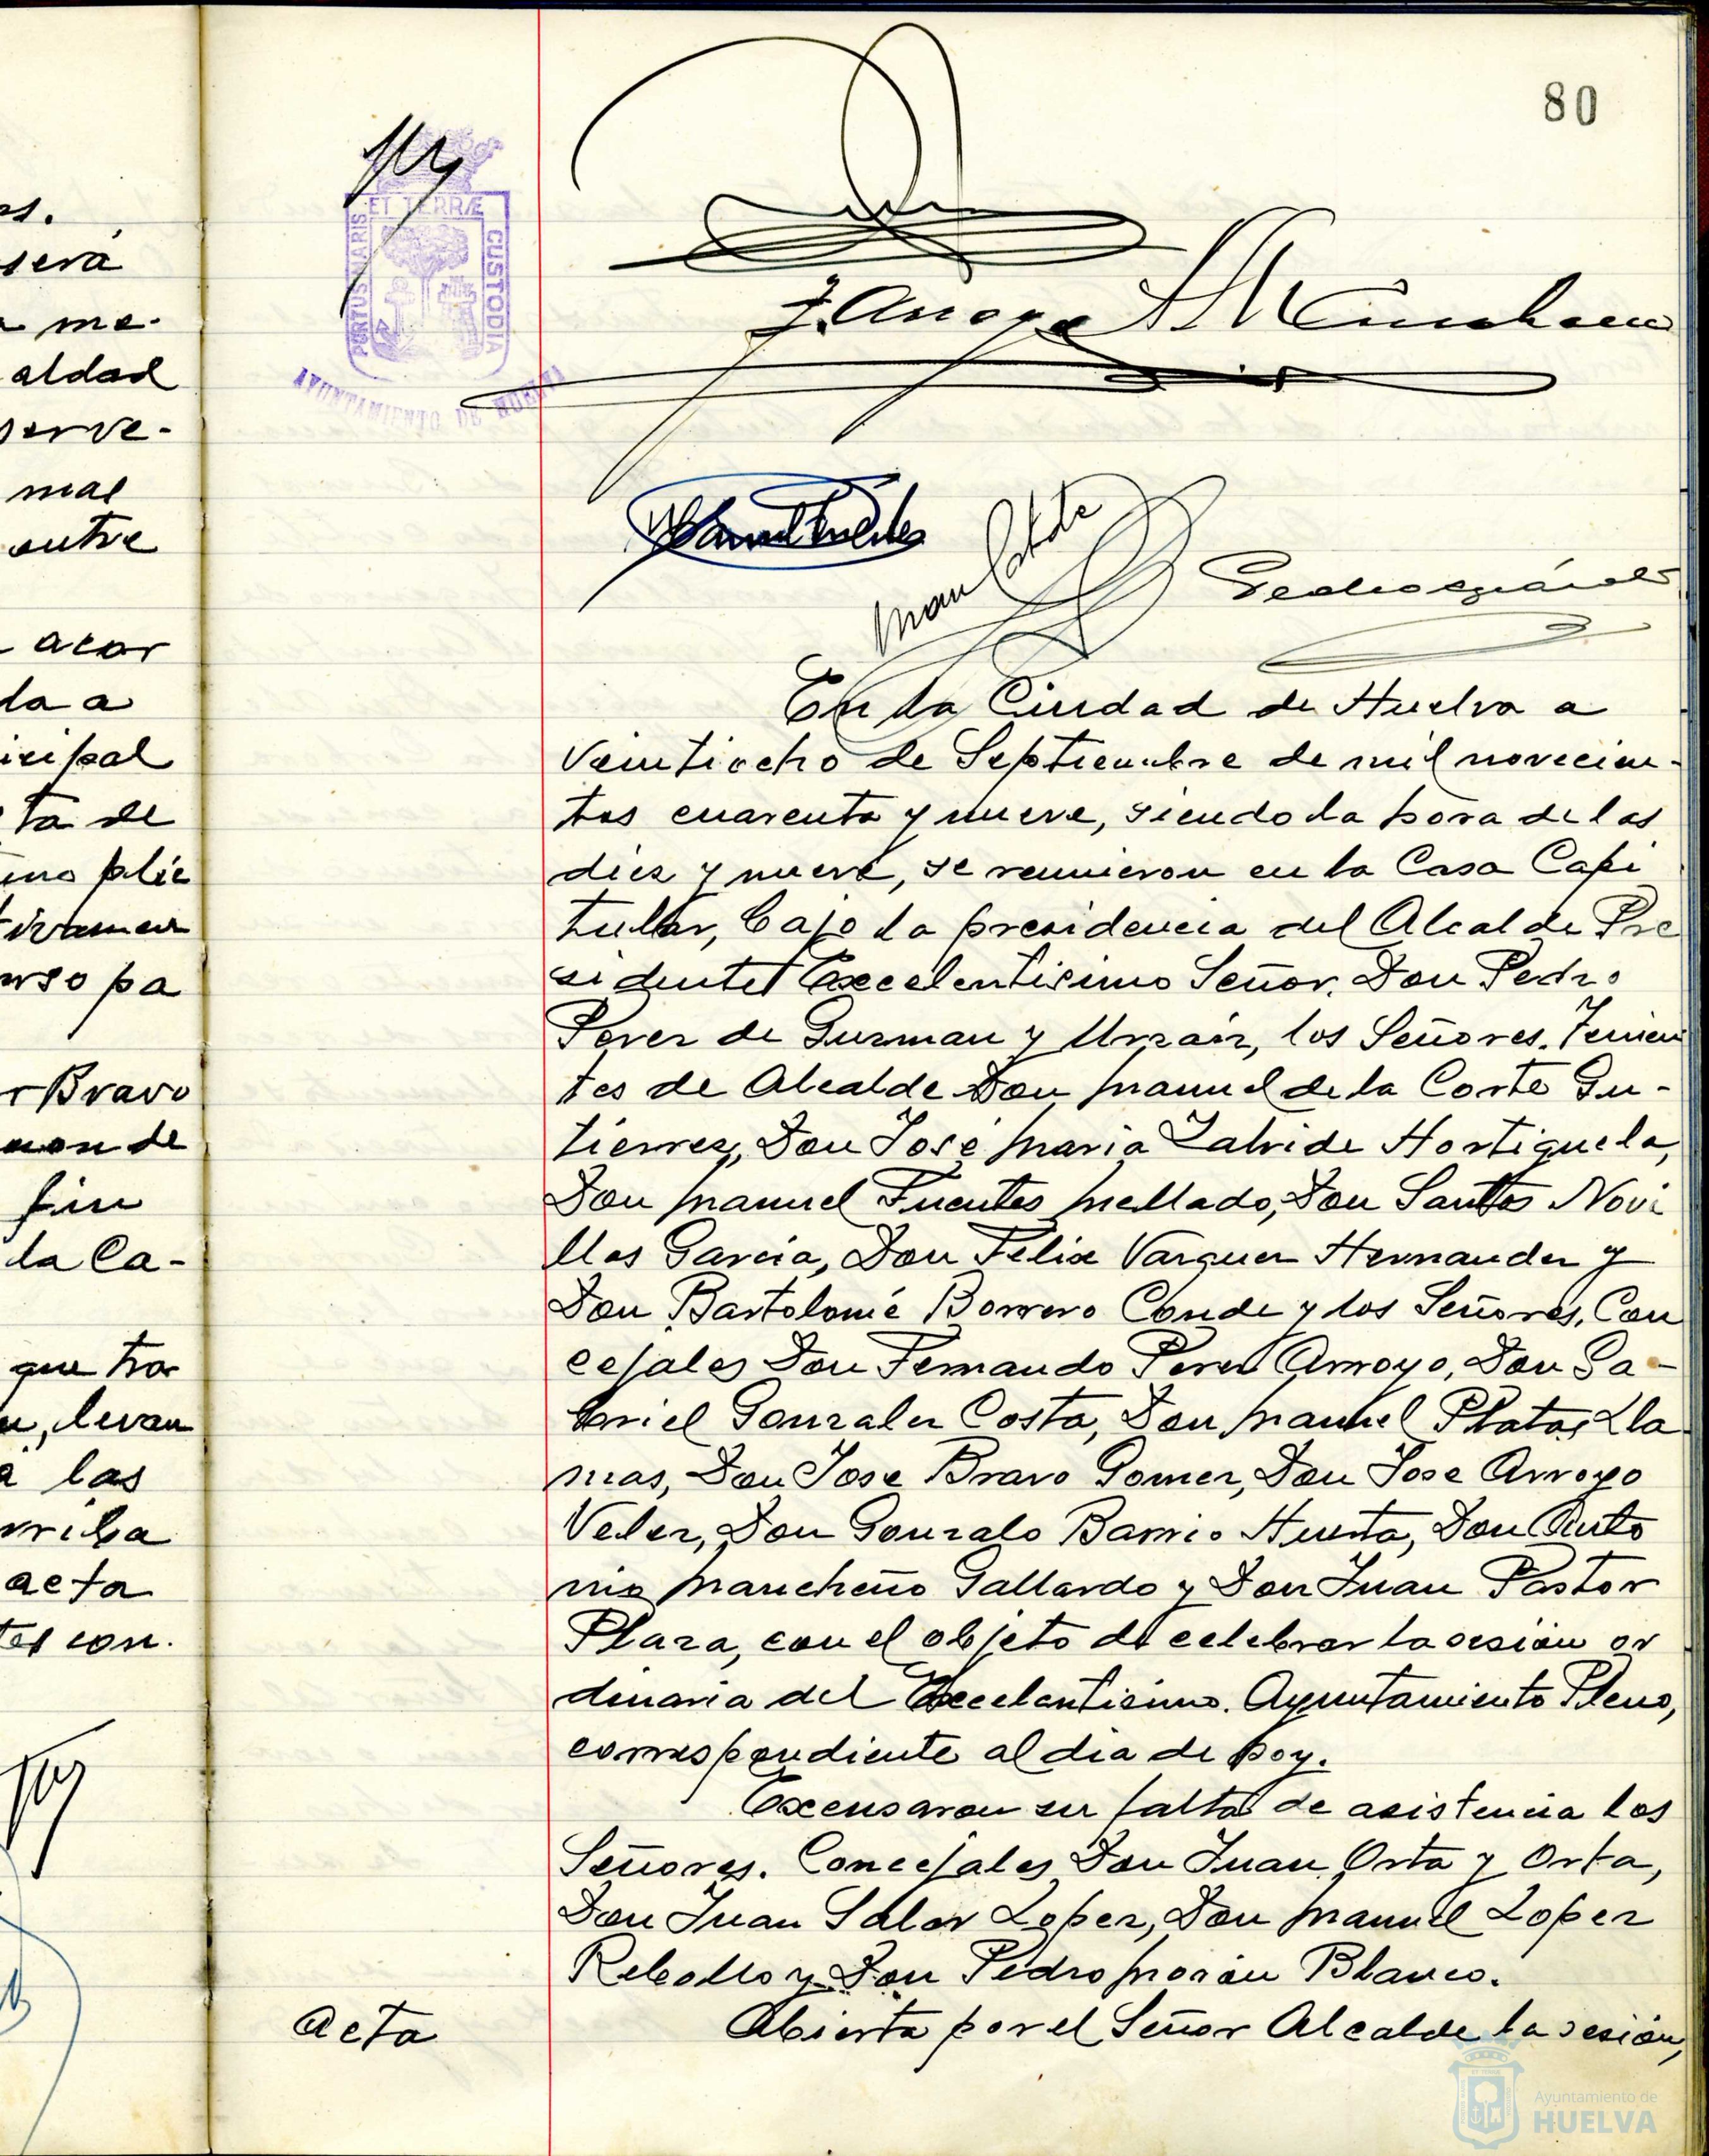 80
PORTUS MARIS
ET TERRÆ
CUSTODIA
AYUNTAMIENTO DE HUELVA
s.
será
me-
aldad
serve-
mal
entre
acor
da a
icipal
ta de
plie
pa
r Bravo
de
fin
la Ca-
que tra
levan
a las
rriba
acta
con.
J. Arroyo
Manuel Fuentes
En la Ciudad de Huelva a
veintiocho de Septiembre de mil novecien-
tos cuarenta y nueve, siendo la hora de las
diez y nueve, se reunieron en la Casa Capi
tular, bajo la presidencia del Alcalde Pre
sidente Excelentisimo Señor. Don Pedro
Perez de Guzman y Urzaiz, los Señores. Tenien
tes de Alcalde Don Manuel de la Corte Gu-
tierrez, Don José Maria Zalvide Hortiguela,
Don Manuel Fuentes Mellado, Don Santos Novi
llos Garcia, Don Felix Vazquez Hernandez y
Don Bartolomé Borrero Conde y los Señores. Con
cejales Don Fernando Perez Arroyo, Don Ga-
briel Gonzalez Costa, Don Manuel Platas Lla
mas, Don Jose Bravo Gomez, Don Jose Arroyo
Velez, Don Gonzalo Barrio Huerta, Don Anto
nio Mancheño Gallardo y Don Juan Pastor
Plaza, con el objeto de celebrar la sesión or
dinaria del Excelentisimo. Ayuntamiento Pleno,
correspondiente al dia de hoy.
Excusaron su falta de asistencia los
Señores. Concejales Don Juan Orta y Orta,
Don Juan Salor Lopez, Don Manuel Lopez
Rebollo y Don Pedro Morón Blanco.
Acta
Abierta por el Señor Alcalde la sesión,
Ayuntamiento de
HUELVA